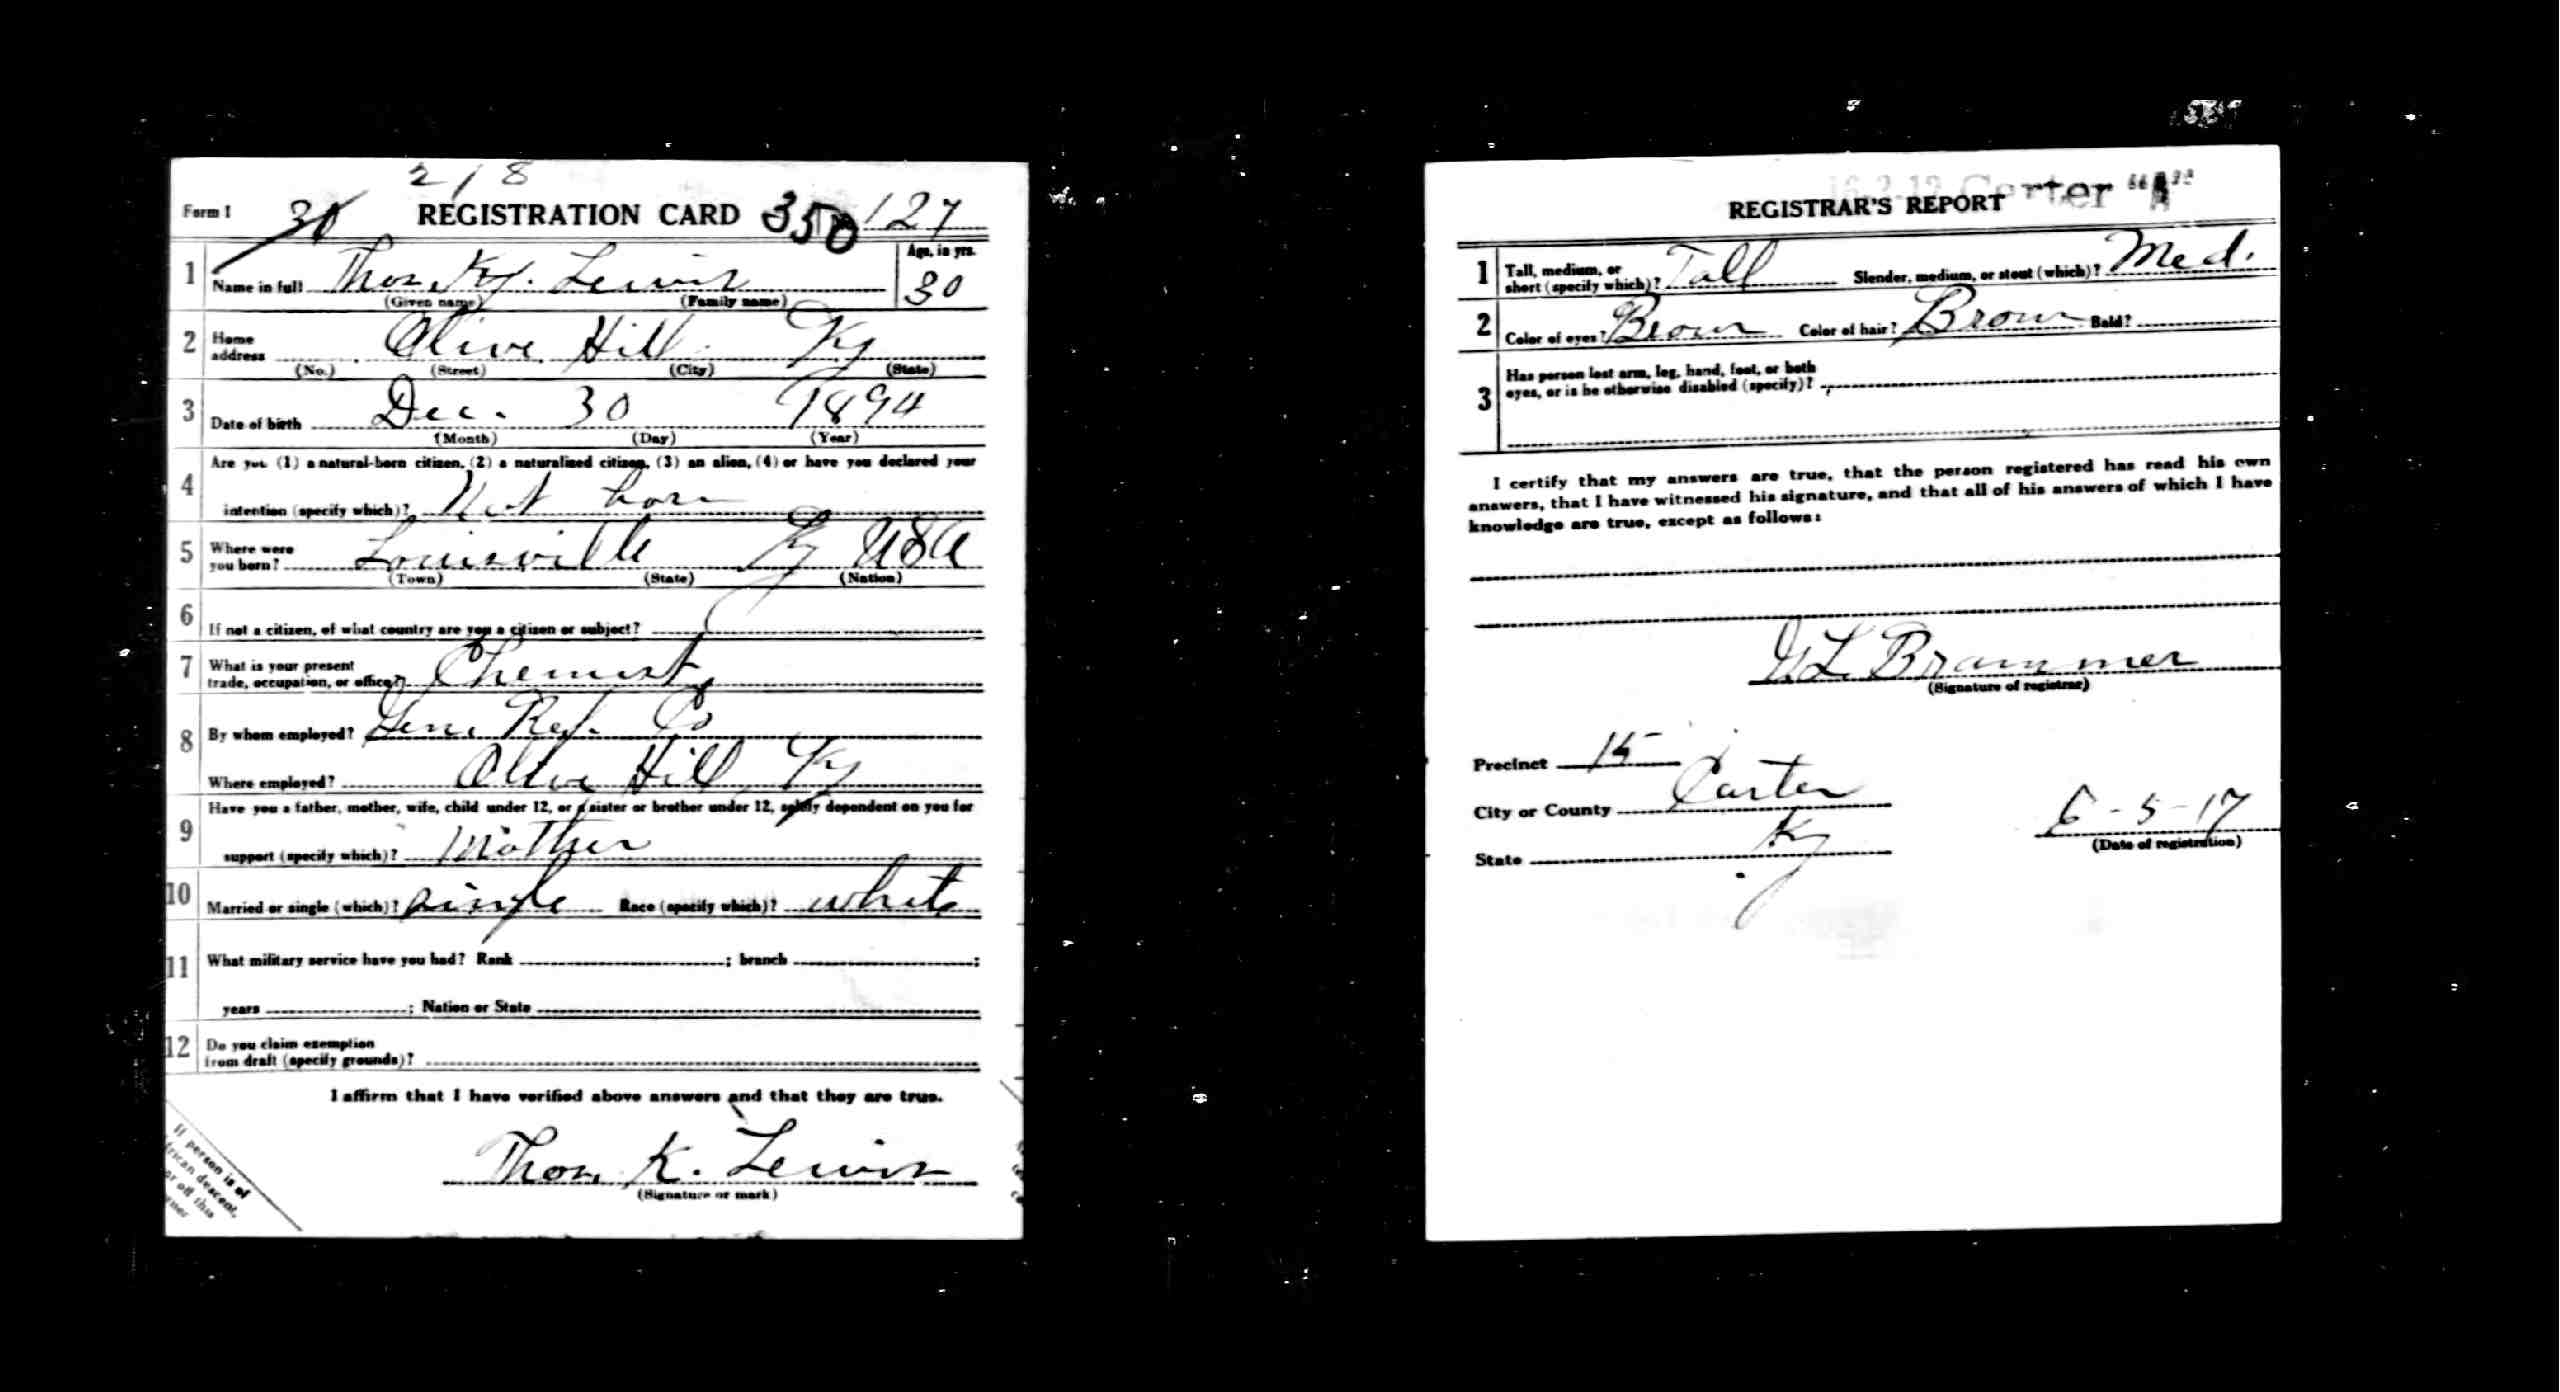 218
Form 1 30 REGISTRATION CARD 350 127
1 Name in full Thos. Ky. Lewis Age, in yrs. 30
(Given name) (Family name)
2 Home address Olive Hill Ky
(No.) (Street) (City) (State)
3 Date of birth Dec. 30 1894
(Month) (Day) (Year)
4 Are you (1) a natural-born citizen, (2) a naturalized citizen, (3) an alien, (4) or have you declared your
intention (specify which)? Nat born
5 Where were you born? Louisville Ky USA
(Town) (State) (Nation)
6 If not a citizen, of what country are you a citizen or subject?
7 What is your present trade, occupation, or office? Chemist
8 By whom employed? Gen. Ref. Co
Where employed? Olive Hill Ky
9 Have you a father, mother, wife, child under 12, or a sister or brother under 12, solely dependent on you for
support (specify which)? Mother
10 Married or single (which)? single Race (specify which)? white
11 What military service have you had? Rank ; branch ;
years ; Nation or State
12 Do you claim exemption
from draft (specify grounds)?
I affirm that I have verified above answers and that they are true.
Thos. K. Lewis
(Signature or mark)
If person is of
African descent,
off this
corner
Carter
REGISTRAR'S REPORT
1 Tall, medium, or short (specify which)? Tall Slender, medium, or stout (which)? Med.
2 Color of eyes? Brown Color of hair? Brown Bald?
3 Has person lost arm, leg, hand, foot, or both
eyes, or is he otherwise disabled (specify)?
I certify that my answers are true, that the person registered has read his own
answers, that I have witnessed his signature, and that all of his answers of which I have
knowledge are true, except as follows:
G. L. Brammer
(Signature of registrar)
Precinct 15
City or County Carter
State Ky
6-5-17
(Date of registration)